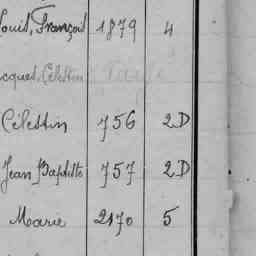 Louis, François 1879 4
Jacques, Célestin
Célestin 756 2D
Jean Baptiste 757 2D
Marie 2170 5